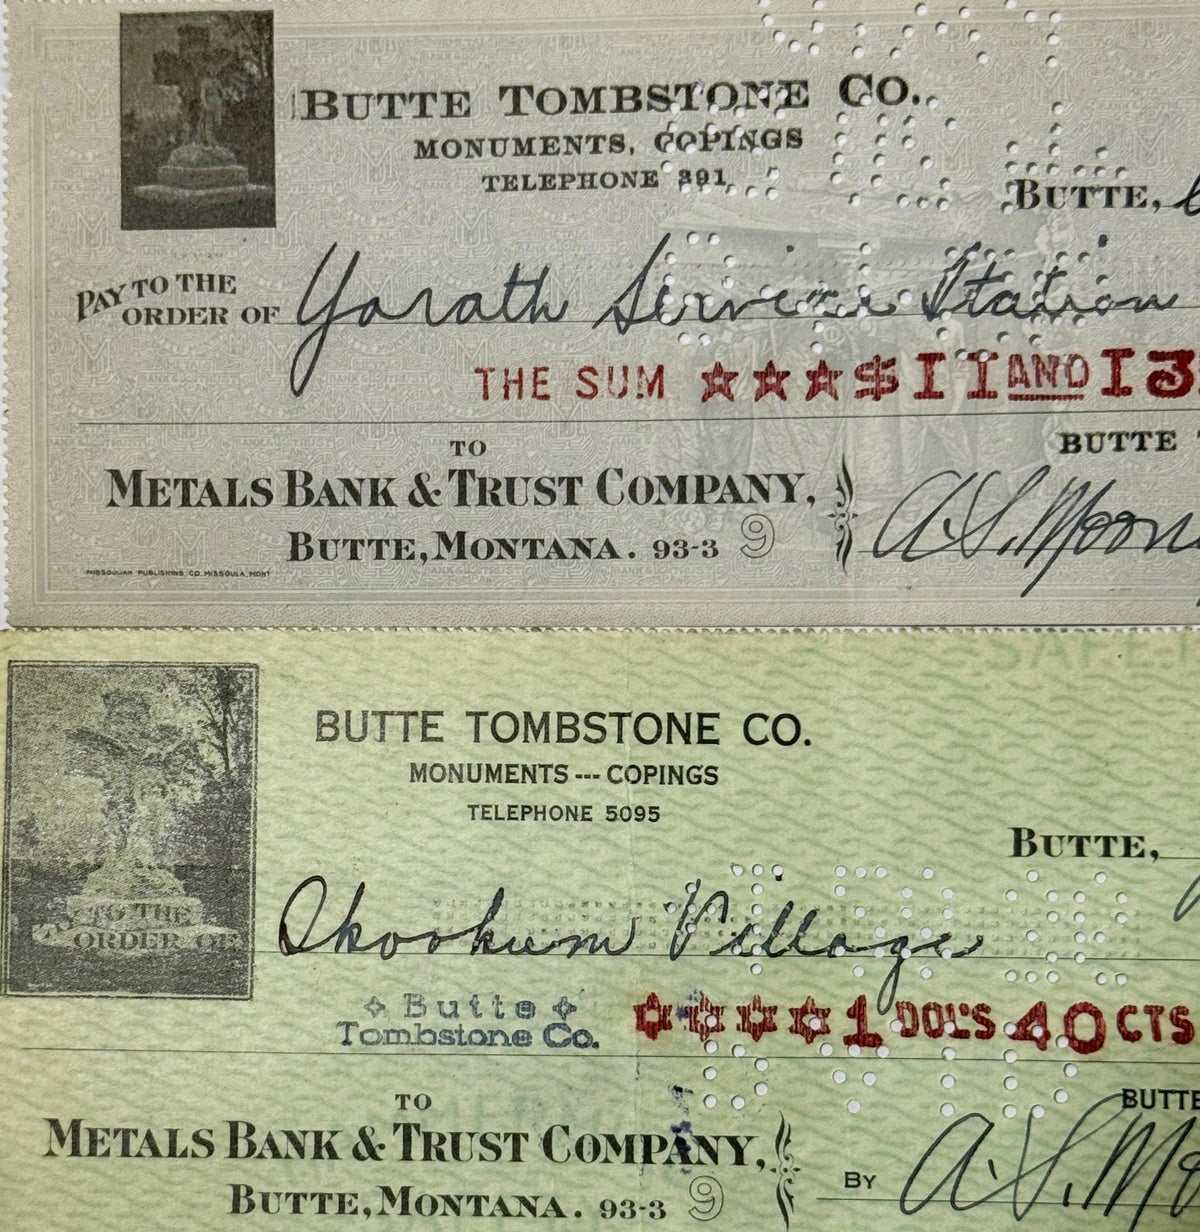 BUTTE TOMBSTONE CO.
MONUMENTS, COPINGS
TELEPHONE 391
BUTTE,
PAY TO THE
ORDER OF Yorath Service Station
THE SUM ★★★$11 AND 13
TO
BUTTE
METALS BANK & TRUST COMPANY,
A.S. Moon
BUTTE, MONTANA. 93-3 9
MISSOULIAN PUBLISHING CO. MISSOULA, MONT
BUTTE TOMBSTONE CO.
MONUMENTS --- COPINGS
TELEPHONE 5095
BUTTE,
PAY TO THE
ORDER OF Skookum Village
Butte
Tombstone Co.
1 DOL'S 40 CTS
TO
BUTTE
METALS BANK & TRUST COMPANY,
BY A.S. Mo
BUTTE, MONTANA. 93-3 9